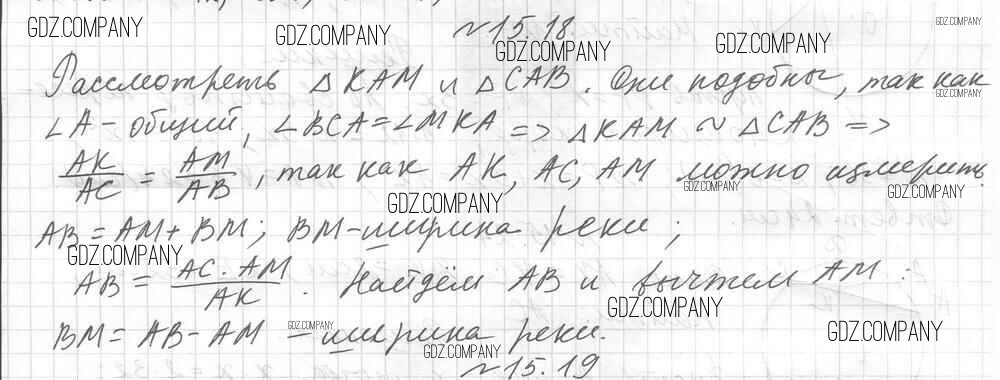 №15.18.
Рассмотреть △KAM и △CAB. Они подобны, так как
∠A - общий, ∠BCA = ∠MKA => △KAM ~ △CAB =>
AK/AC = AM/AB, так как AK, AC, AM можно измерить.
AB = AM + BM; BM - ширина реки;
AB = AC · AM / AK. Найдём AB и вычтем AM:
BM = AB - AM - ширина реки.
№15.19
GDZ.COMPANY
GDZ.COMPANY
GDZ.COMPANY
GDZ.COMPANY
GDZ.COMPANY
GDZ.COMPANY
GDZ.COMPANY
GDZ.COMPANY
GDZ.COMPANY
GDZ.COMPANY
GDZ.COMPANY
GDZ.COMPANY
GDZ.COMPANY
GDZ.COMPANY